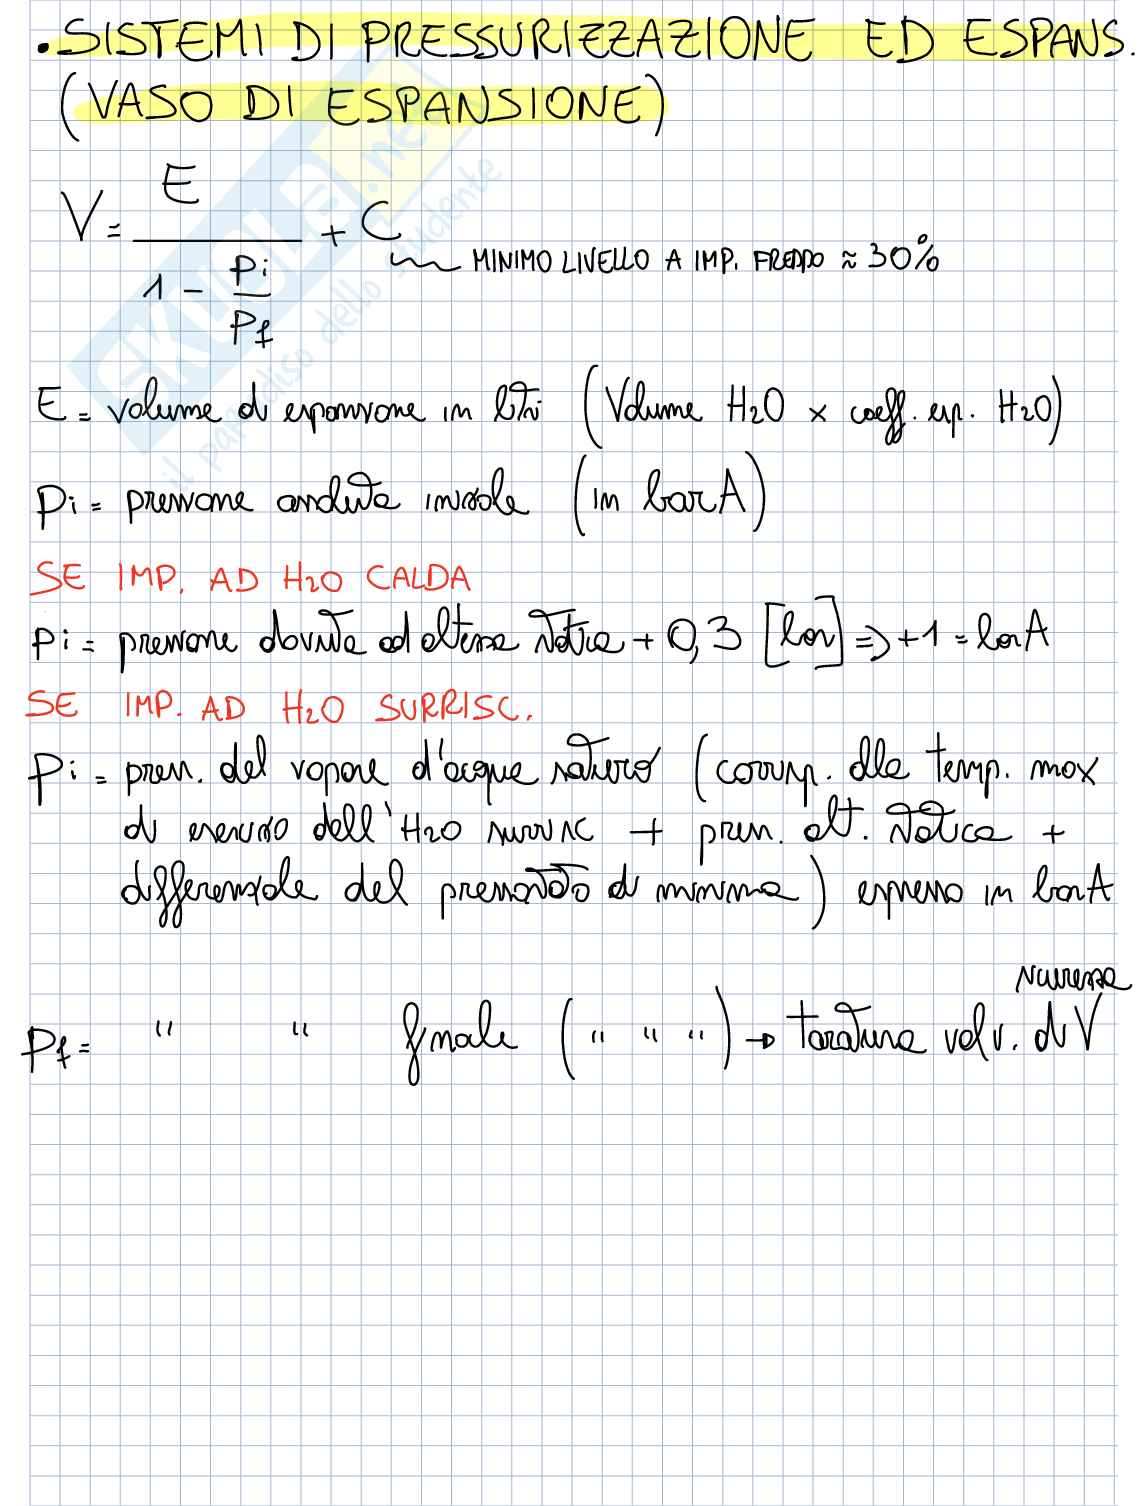 • SISTEMI DI PRESSURIZZAZIONE ED ESPANS.
(VASO DI ESPANSIONE)
V = E / (1 - Pi/Pf) + C
MINIMO LIVELLO A IMP. FREDDO ≈ 30%
E = volume di espansione in litri (Volume H2O x coeff. esp. H2O)
Pi = pressione assoluta iniziale (in bar A)
SE IMP. AD H2O CALDA
Pi = pressione dovuta ad altezza statica + 0,3 [bar] => +1 = bar A
SE IMP. AD H2O SURRISC.
Pi = press. del vapore d'acqua saturo (corrisp. alla temp. max
di esercizio dell'H2O surrisc + press. alt. statica +
differenziale del pressostato di minima) espresso in bar A
Pf = " " finale (" " ") → taratura valv. di V sicurezza
SKUOLA.net
il paradiso dello studente